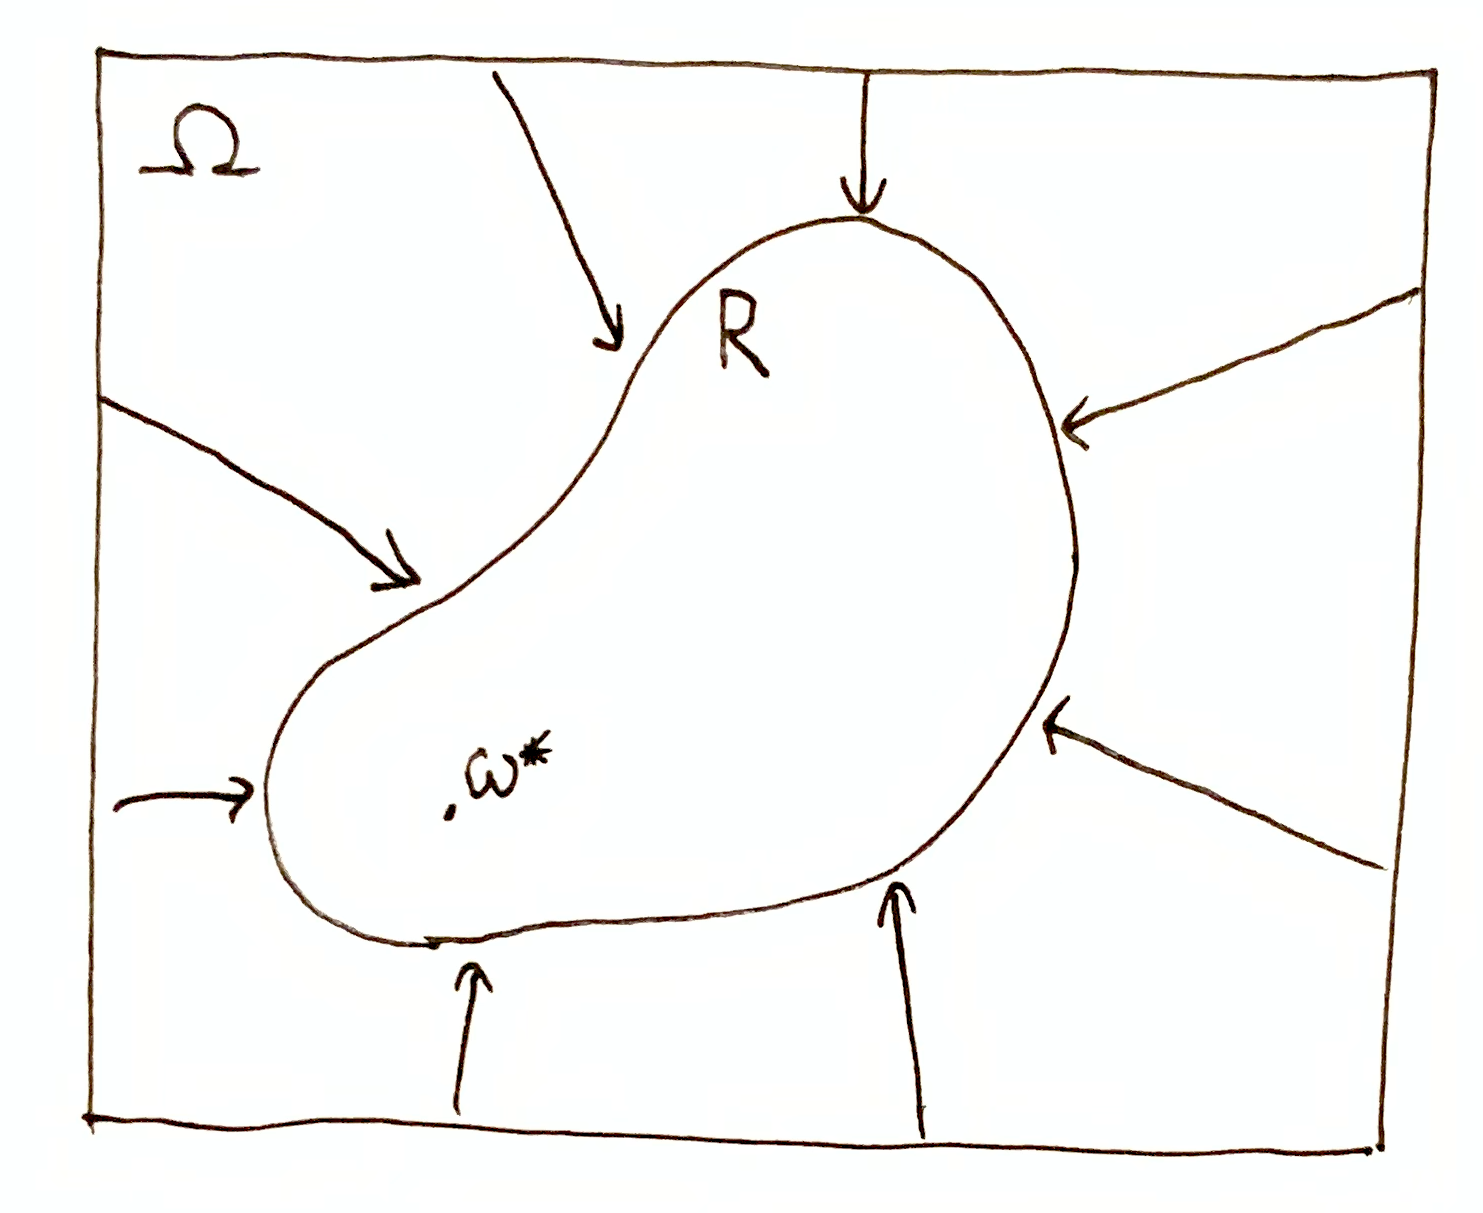 Ω
R
ω*